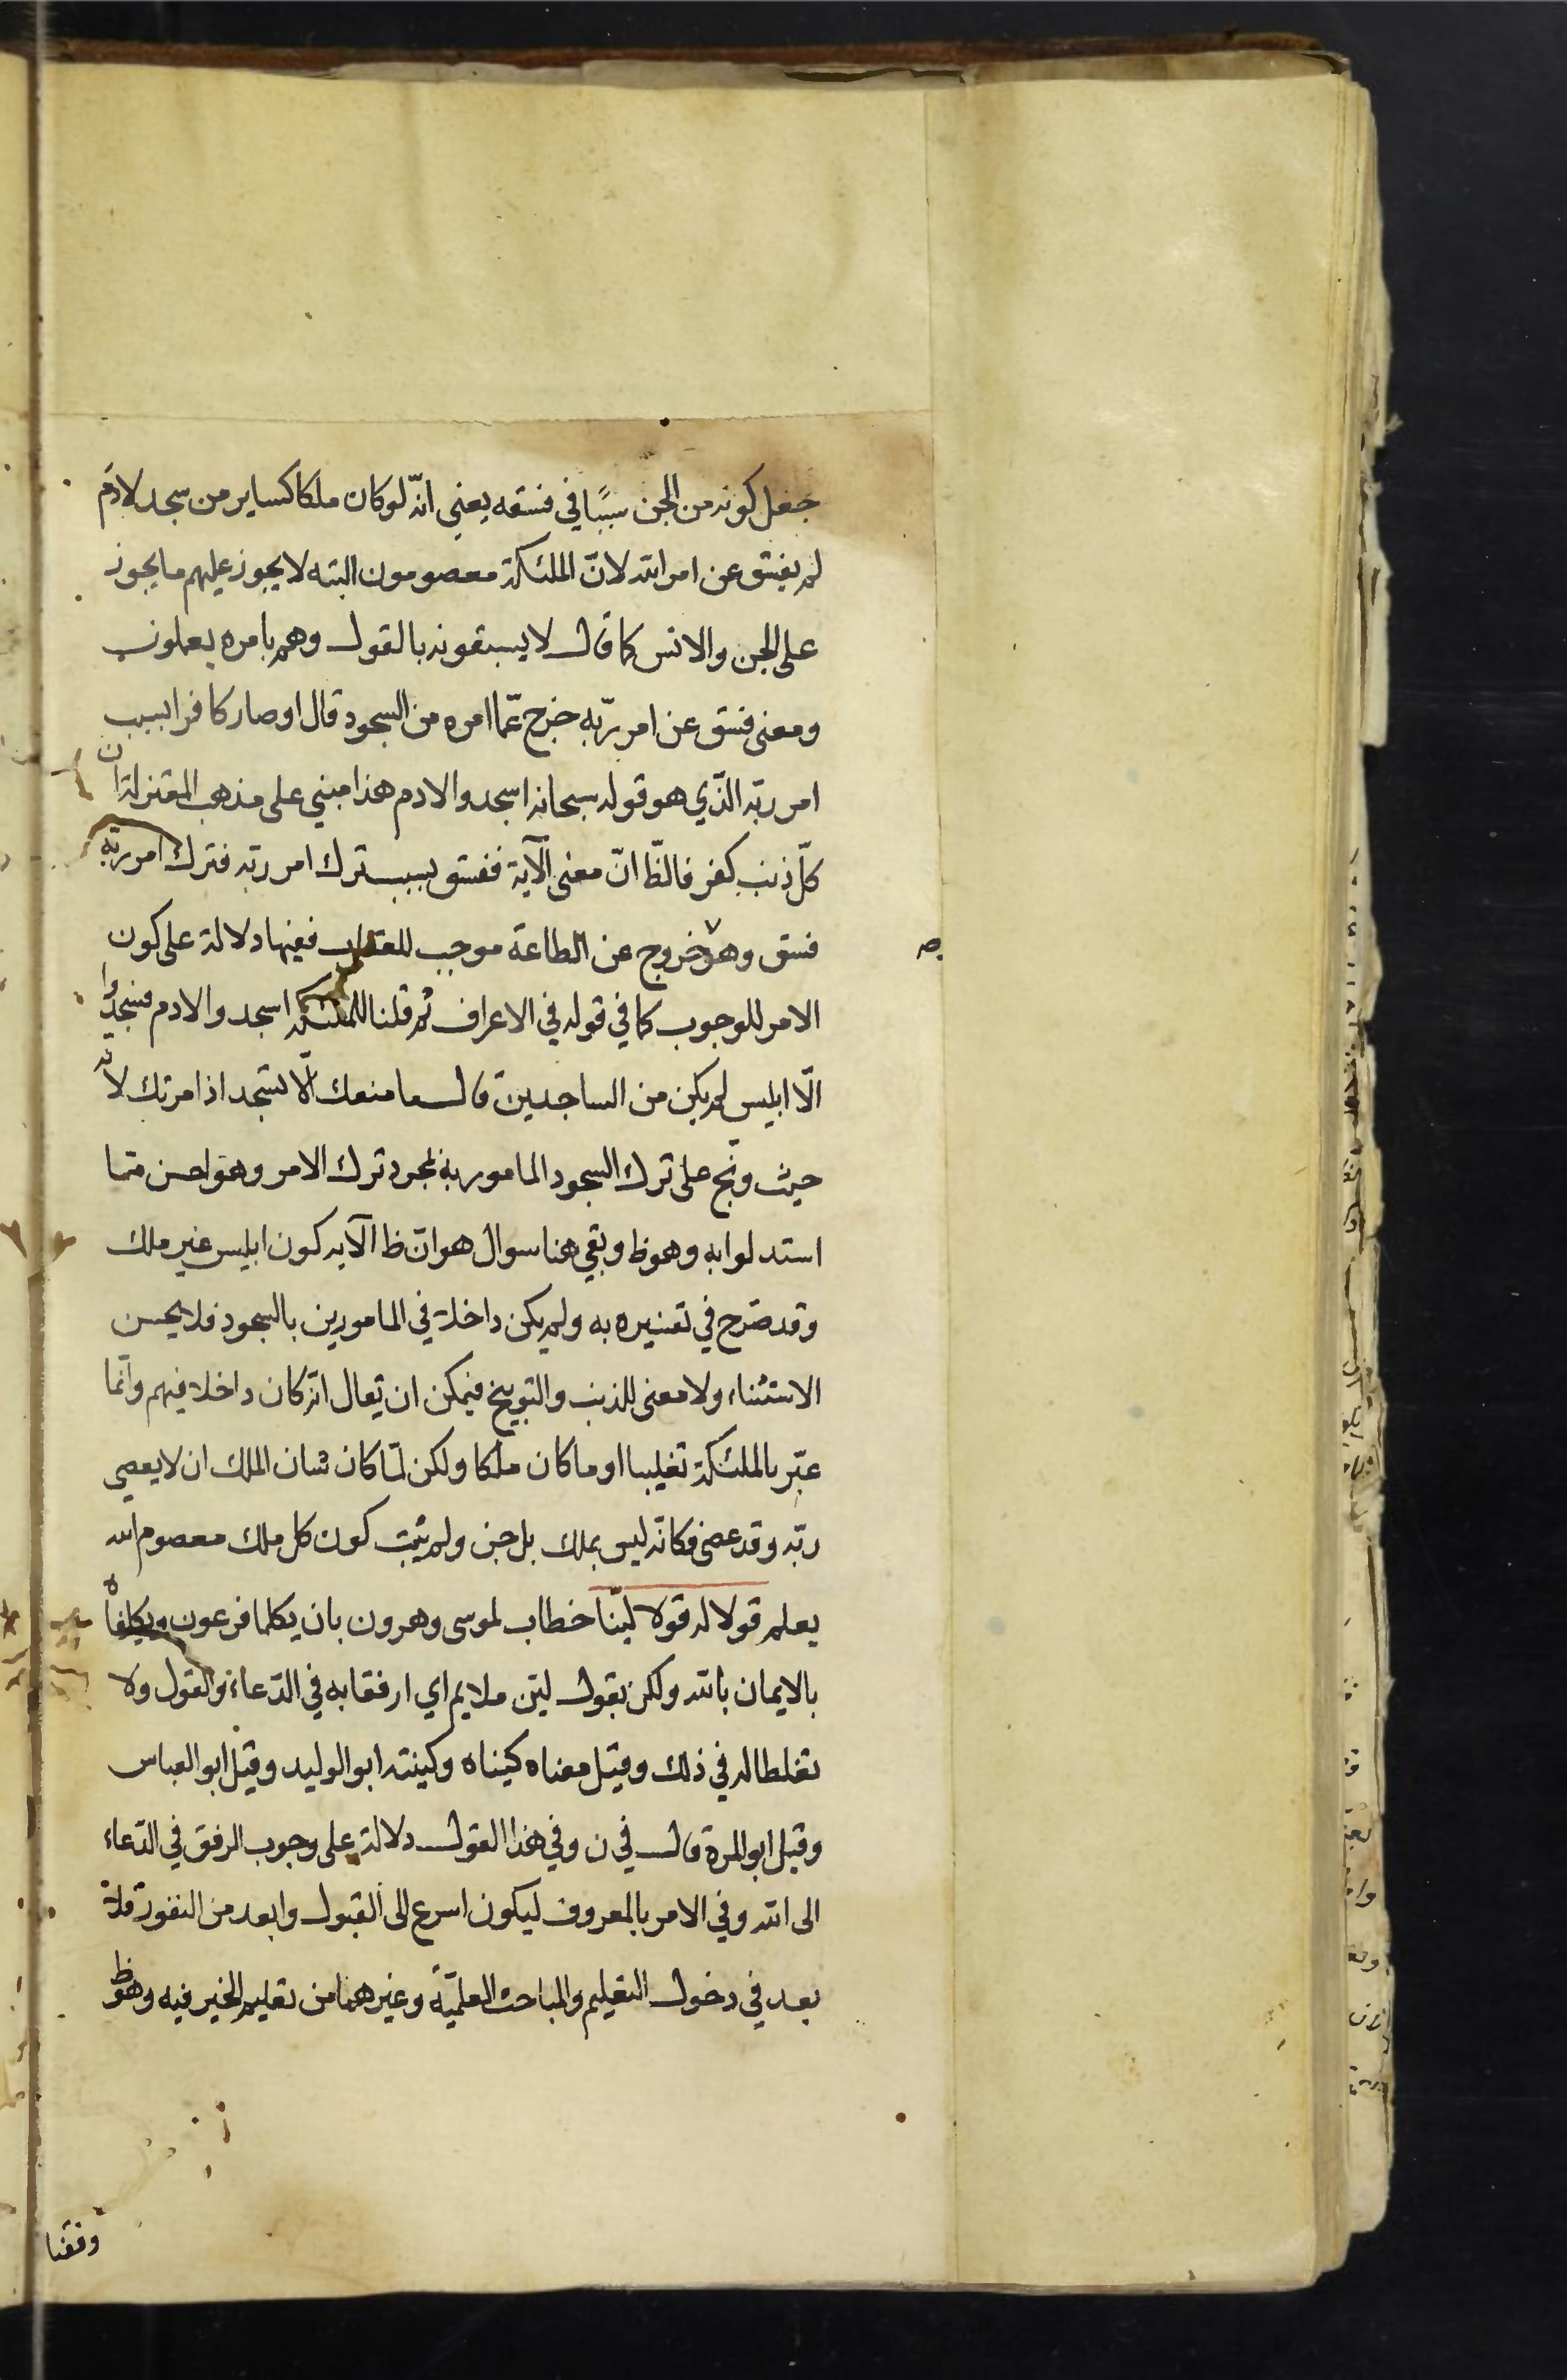 جعل كونه من الجن سببًا في فسقه يعني انّه لو كان ملكا كساير من سجد لادم
لم يفسق عن امر الله لانّ الملئكة معصومون البته لا يجوز عليهم ما يجوز
على الجن والانس كما قال لا يسبقونه بالقول وهم بامره يعملون
ومعنى فسق عن امر ربّه خرج عمّا امره من السجود قال او صار كافرا بسبب
امر ربّه الذّي هو قوله سبحانه اسجدوا لادم هذا مبني على مذهب المعتزلة ان
كلّ ذنب كفر فالظّ انّ معنى الآية ففسق بسبب ترك امر ربّه فترك امر ربّه
فسق وهو خروج عن الطاعة موجب للعقاب ففيها دلالة على كون
الامر للوجوب كما في قوله في الاعراف ثم قلنا للملئكة اسجدوا لادم فسجدوا
الّا ابليس لم يكن من الساجدين قال ما منعك الّا تسجد اذ امرتك لانّه
حيث وبّخ على ترك السجود المامور به لمجرد ترك الامر وهو احسن ممّا
استدلوا به وهو ظ وبقي هنا سوال هو انّ ظ الآيه كون ابليس غير ملك
وقد صّرح في تفسيره به ولم يكن داخلا في المامورين بالسجود فلا يحسن
الاستثناء ولا معنى للذنب والتوبيخ فيمكن ان يقال انّه كان داخلا فيهم وانّما
عبّر بالملئكة تغليبا او ما كان ملكا ولكن لمّا كان شان الملك ان لا يعصي
ربّه وقد عصى فكانّه ليس بملك بل جن ولم يثبت كون كل ملك معصوم الله
يعلم قولا له قولا ليّنا خطاب لموسى وهرون بان يكلما فرعون ويكلفاه
بالايمان بالله ولكن بقول ليّن ملايم اي ارفقا به في الدّعاء والقول ولا
تغلطا له في ذلك وقيل معناه كنياه وكنيته ابو الوليد وقيل ابو العباس
وقيل ابو المرة قال في ن وفي هذا القول دلالة على وجوب الرفق في الدّعاء
الى الله وفي الامر بالمعروف ليكون اسرع الى القبول وابعد من النفور فلا
بعد في دخول التعليم والمباحث العلميّة وغيرهما من تعليم الخير فيه وهو ظ
وفقنا